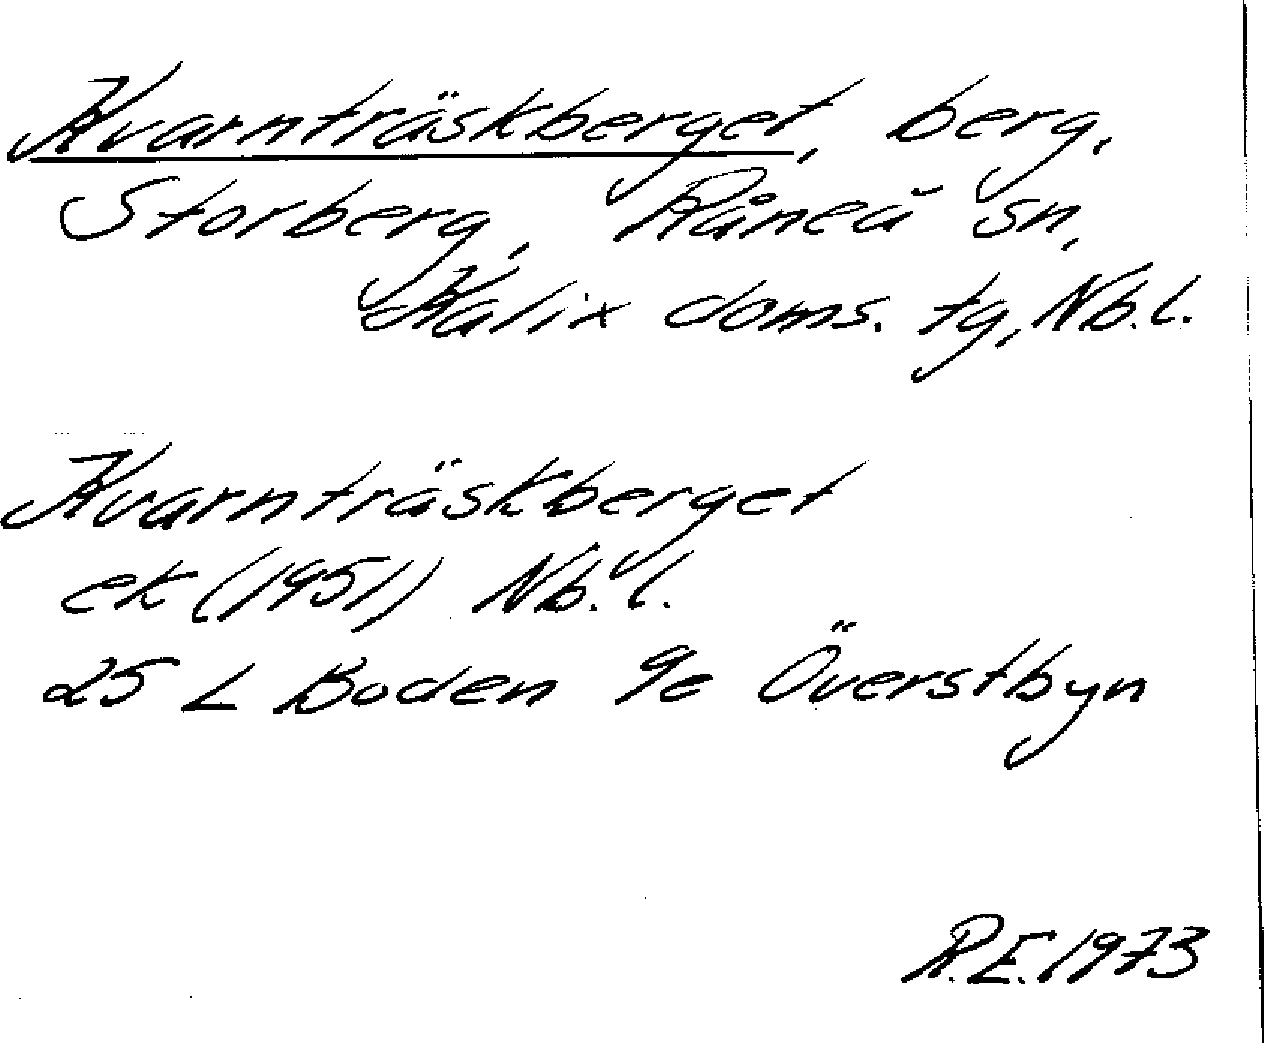 Kvarnträskberget, berg,
Storberg, Råneå sn,
Kalix doms. tg, Nb.l.
Kvarnträskberget
ek (1951) Nb.l.
25 L Boden 9e Överstbyn
R.E. 1973